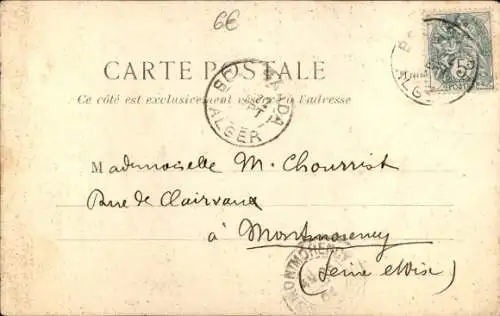 6€
CARTE POSTALE
Ce côté est exclusivement réservé à l'adresse
Mademoiselle M. Chourrist
Rue de Clairvaux
à Montmorency
(Seine et Oise)
ALGER
MONTMORENCY
5